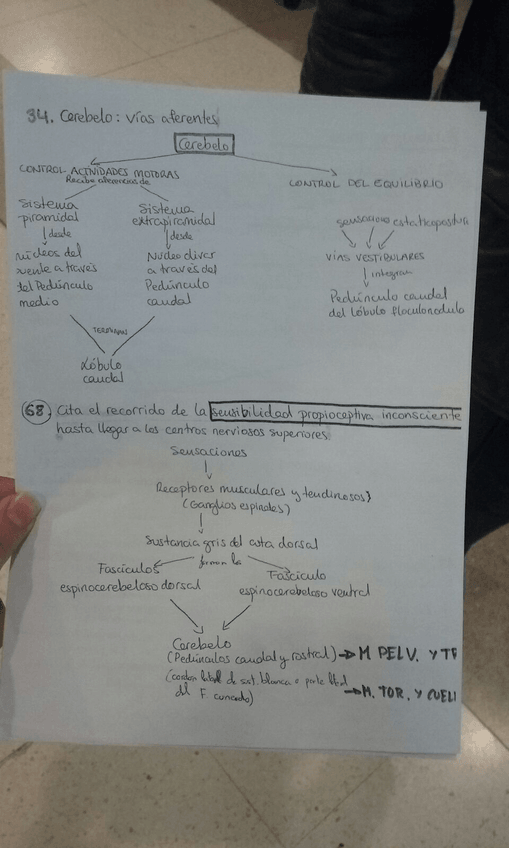 34. Cerebelo: vías aferentes
Cerebelo
CONTROL ACTIVIDADES MOTORAS
Recibe aferencias de
CONTROL DEL EQUILIBRIO
Sistema
piramidal
desde
núcleos del
puente a través
del Pedúnculo
medio
Sistema
extrapiramidal
desde
Núcleo olivar
a través del
Pedúnculo
caudal
TERMINAN
Lóbulo
caudal
VÍAS VESTIBULARES
integran
Pedúnculo caudal
del lóbulo floculonodulo
68. Cita el recorrido de la sensibilidad propioceptiva inconsciente
hasta llegar a los centros nerviosos superiores.
Sensaciones
Receptores musculares y tendinosos
(Ganglios espinales)
Sustancia gris del asta dorsal
forman los
Fascículos
espinocerebeloso dorsal
Fascículo
espinocerebeloso ventral
Cerebelo
(Pedúnculos caudal y rostral) M PELV. Y
de sust. blanca o parte
del F. cuneado) M. TOR. Y CUELL